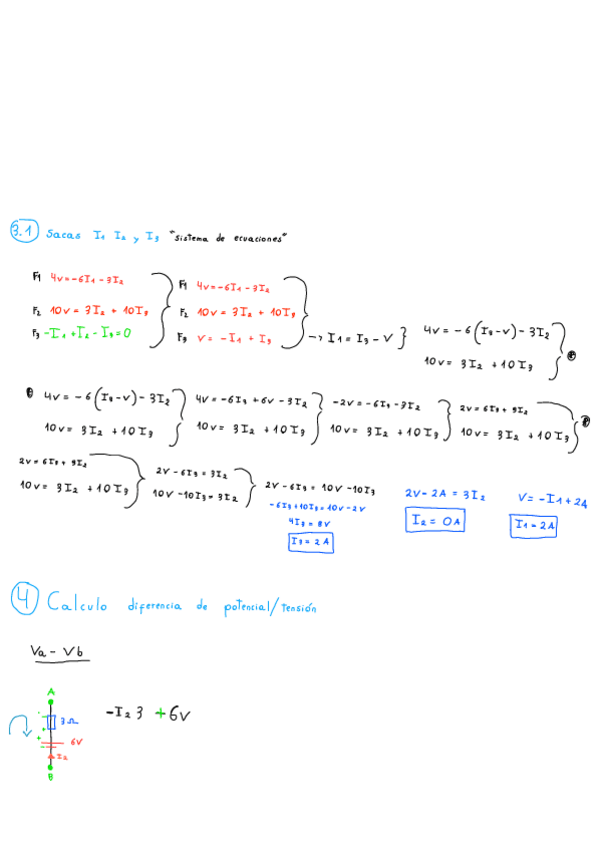 3.1 Sacas I1 I2 y I3 "sistema de ecuaciones"
F1 4v=-6I1-3I2
F2 10v = 3I2 + 10I3
F3 -I1+I2-I3=0
F1 4v=-6I1-3I2
F2 10v = 3I2 + 10I3
F3 v = -I1 + I3 → I1 = I3 - V
4v = -6(I3-v)-3I2
10v = 3I2 + 10I3
4v = -6(I3-v)-3I2
10v = 3I2 + 10I3
4v = -6I3 + 6v - 3I2
10v = 3I2 + 10I3
-2v = -6I3 - 3I2
10v = 3I2 + 10I3
2v = 6I3 + 3I2
10v = 3I2 + 10I3
2v = 6I3 + 3I2
10v = 3I2 + 10I3
2v - 6I3 = 3I2
10v - 10I3 = 3I2
2v - 6I3 = 10v - 10I3
-6I3 + 10I3 = 10v - 2v
4I3 = 8v
I3 = 2A
2v - 2A = 3I2
I2 = 0A
V = -I1 + 2A
I1 = 2A
4 Calculo diferencia de potencial/tensión
Va - Vb
A
3Ω
6V
I2
B
-I2 3 + 6v